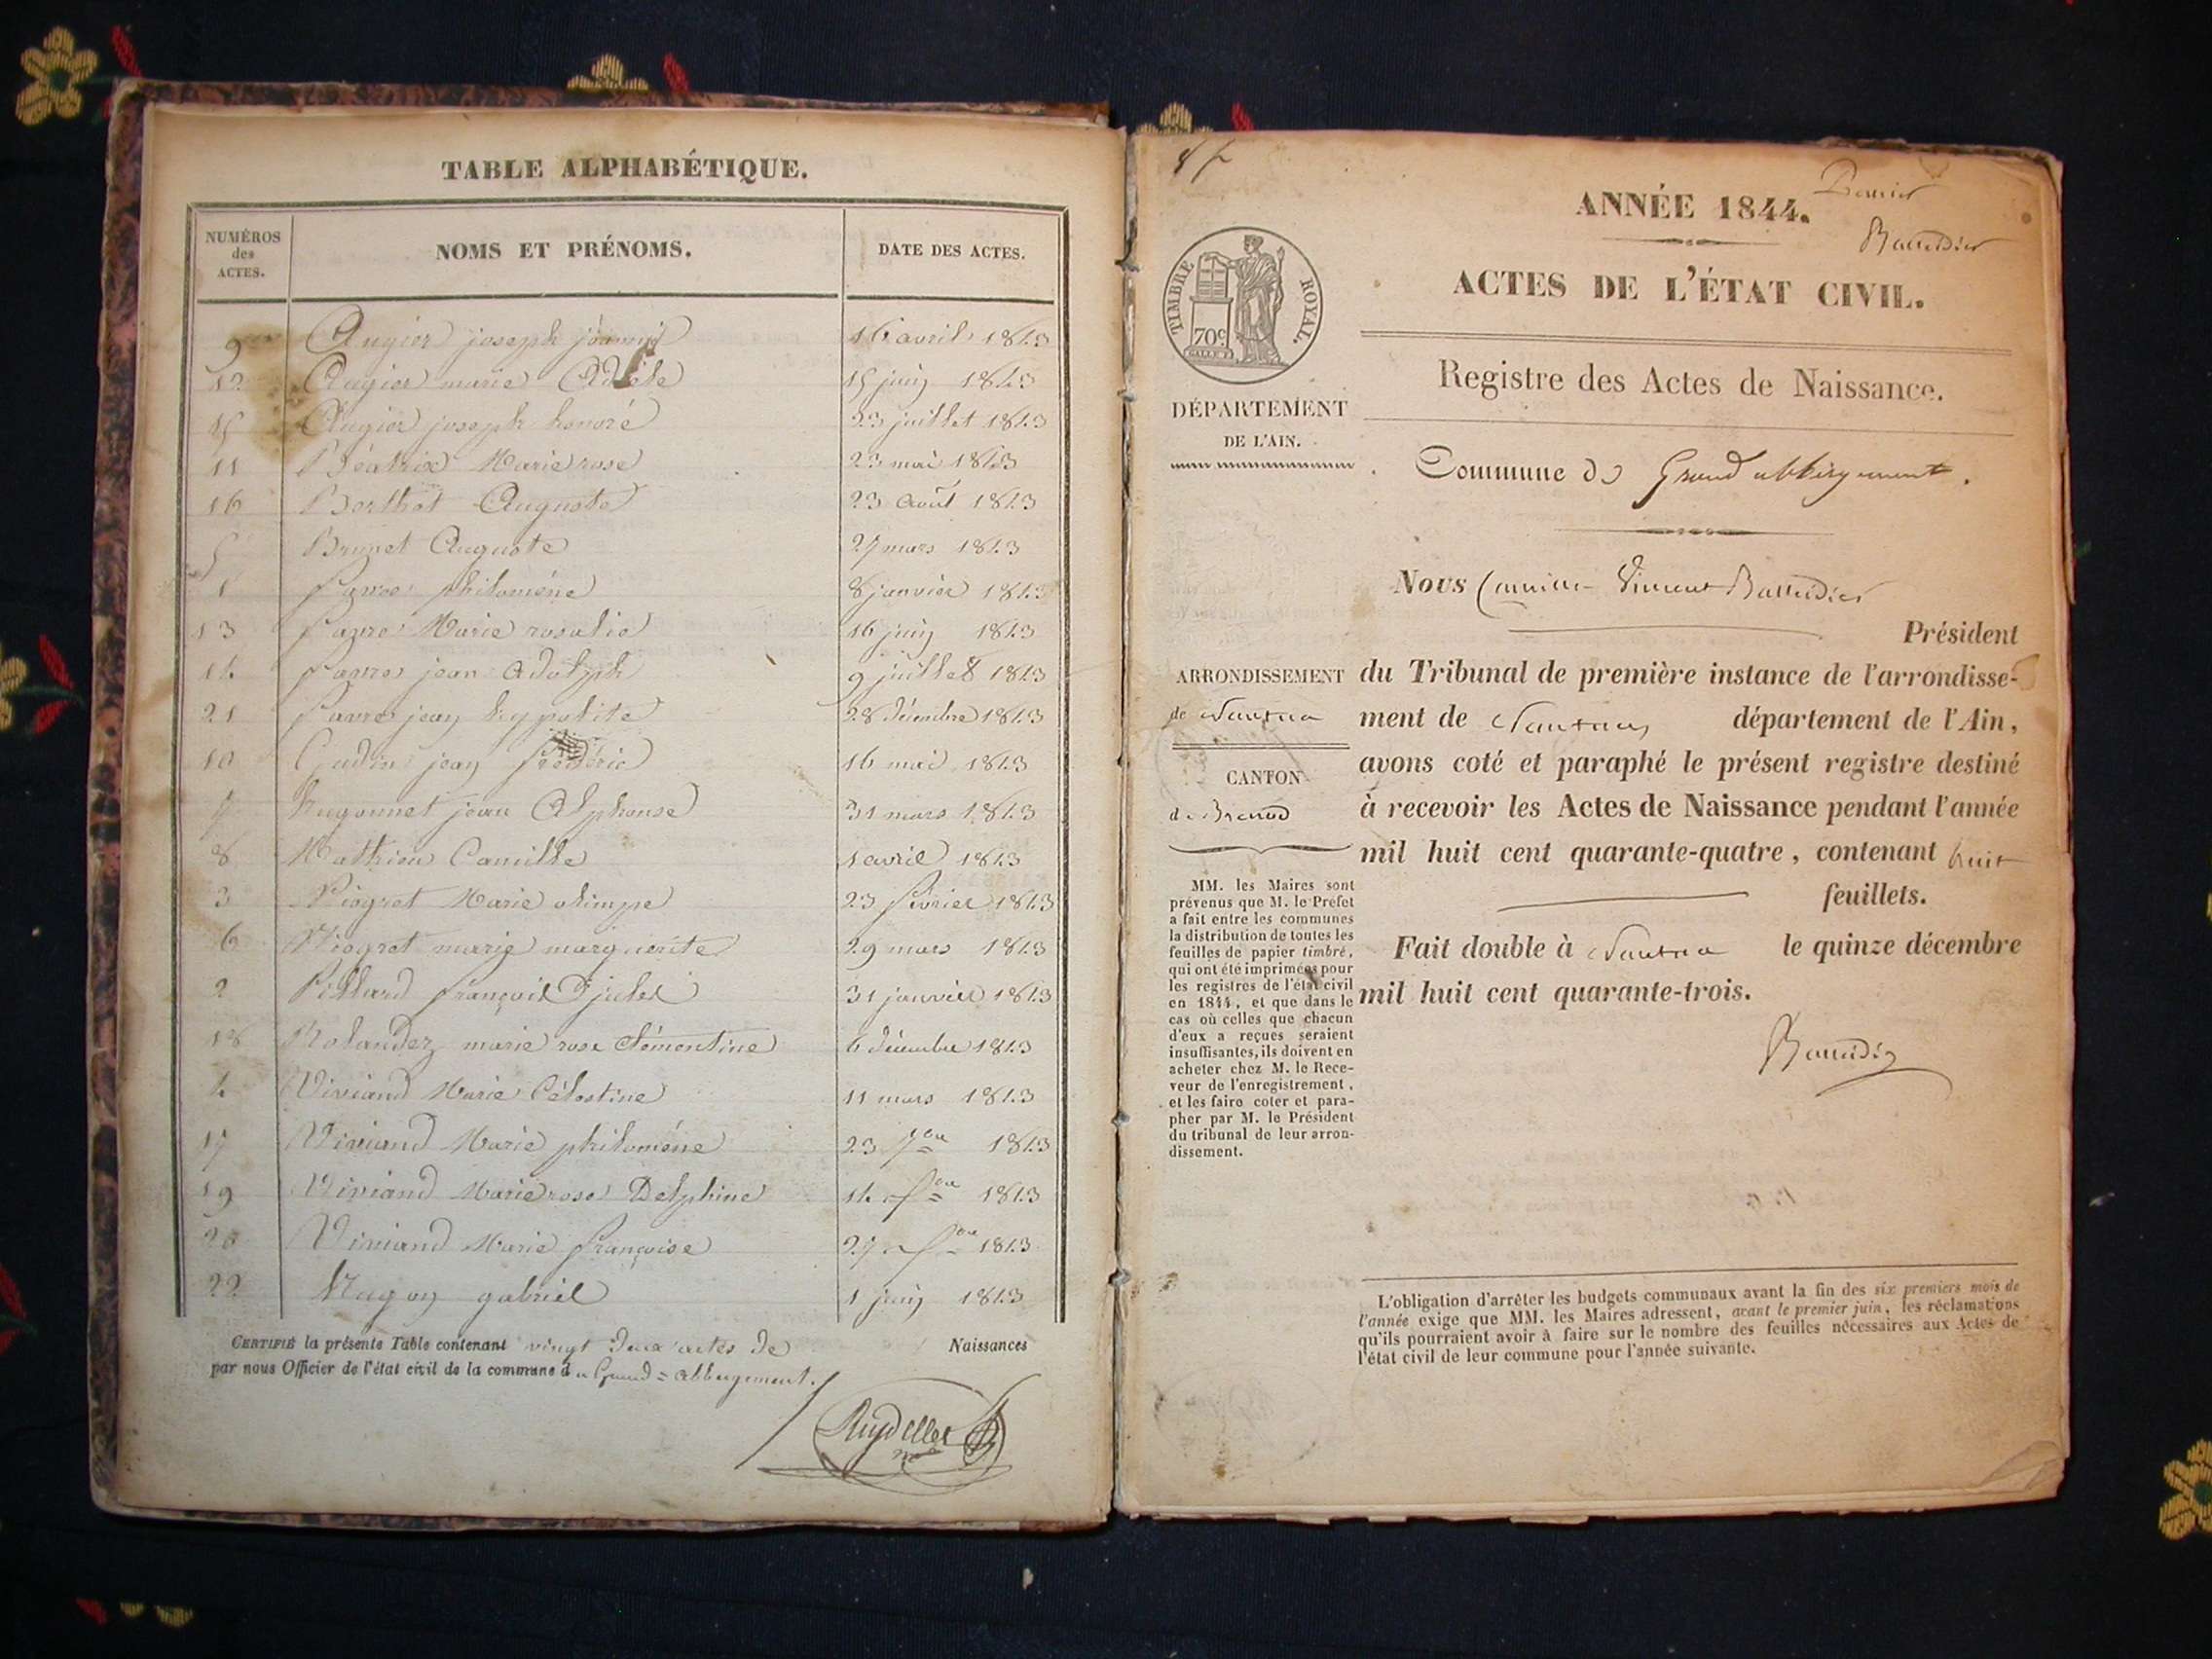 TABLE ALPHABÉTIQUE.
NUMÉROS des ACTES. NOMS ET PRÉNOMS. DATE DES ACTES.
9 Augier joseph 16 avril 1843
12 Augier marie Adèle 15 juin 1843
15 Augier joseph honoré 23 juillet 1843
11 Béatrix Marie rose 23 mai 1843
16 Berthet Auguste 23 août 1843
5 Brunet Auguste 27 mars 1843
1 favre philoméne 8 janvier 1843
13 favre Marie rosalie 16 juin 1843
14 favre jean Adolph 9 juillet 1843
21 favre jean hypolite 28 décembre 1843
10 Gudin jean frédéric 16 mai 1843
7 hugonnet jean Alphonse 31 mars 1843
8 Mathieu Camille 1 avril 1843
3 Piogret Marie olimpe 23 février 1843
6 Piogret marie marguerite 29 mars 1843
2 Pillard françois jules 31 janvier 1843
18 Rolandez marie rose clémentine 6 décembre 1843
4 Viviand Marie Célestine 11 mars 1843
17 Viviand Marie philoméne 23 1843
19 Viviand Marie rose Delphine 14 1843
20 Viviand Marie françoise 27 1843
22 gabriel 1 juin 1843
CERTIFIÉ la présente Table contenant vingt deux actes de Naissances
par nous Officier de l'état civil de la commune du Grand = abbergement.
ANNÉE 1844.
Baudier
ACTES DE L'ÉTAT CIVIL.
TIMBRE ROYAL.
70c
Registre des Actes de Naissance.
DÉPARTEMENT
DE L'AIN.
Commune de Grand abbergement.
Nous Vincent
Président
du Tribunal de première instance de l'arrondisse-
ment de Nantua département de l'Ain,
avons coté et paraphé le présent registre destiné
à recevoir les Actes de Naissance pendant l'année
mil huit cent quarante-quatre, contenant huit
feuillets.
Fait double à Nantua le quinze décembre
mil huit cent quarante-trois.
ARRONDISSEMENT
de Nantua
CANTON
de Brenod
MM. les Maires sont
prévenus que M. le Préfet
a fait entre les communes
la distribution de toutes les
feuilles de papier timbré,
qui ont été imprimées pour
les registres de l'état civil
en 1844, et que dans le
cas où celles que chacun
d'eux a reçues seraient
insuffisantes, ils doivent en
acheter chez M. le Rece-
veur de l'enregistrement,
et les faire coter et para-
pher par M. le Président
du tribunal de leur arron-
dissement.
L'obligation d'arrêter les budgets communaux avant la fin des six premiers mois de
l'année exige que MM. les Maires adressent, avant le premier juin, les réclamations
qu'ils pourraient avoir à faire sur le nombre des feuilles nécessaires aux Actes de
l'état civil de leur commune pour l'année suivante.